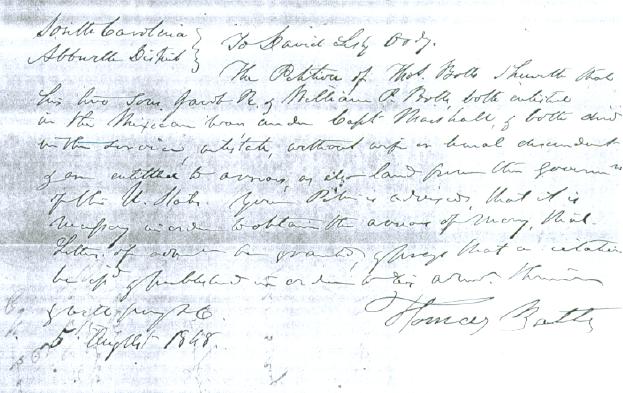 South Carolina
Abbeville District } To David Lesly Ordy.
The Petition of Thos. Botts Sheweth that
his two Sons Jacob R. & William P. Botts both enlisted
in the Mexican war under Capt Marshall, & both died
in the service intestate, without wife or lineal descendent
& are entitled to arrears, as also land from the Governm
of the U. States your Petr is advised, that it is
necessary in order to obtain the arrears of money, that
Letters of admr be granted, & prays that a citation
be isd & published in order to his admr. thereon
5 August 1848.
Thomas Botts